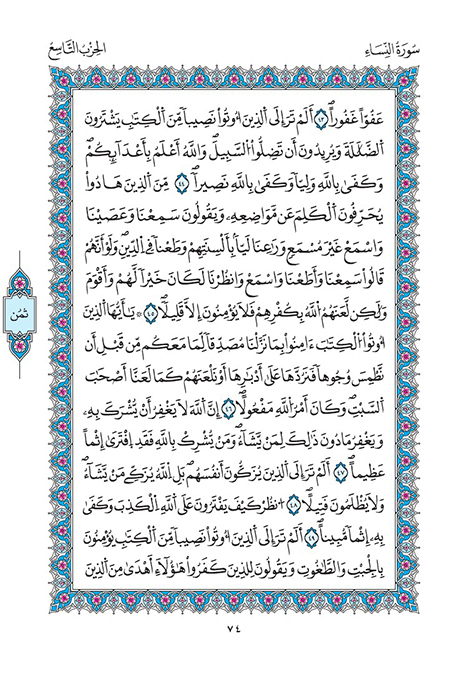 سُورَةُ النِّسَاءِ
الحِزْبُ التَّاسِعُ
عَفُوّاً غَفُوراًۖ ٤٣ اَلَمْ تَرَ إِلَى اَلذِينَ أُوتُواْ نَصِيباً مِّنَ اَلْكِتَٰبِ يَشْتَرُونَ
اَلضَّلَٰلَةَ وَيُرِيدُونَ أَن تَضِلُّواْ اُلسَّبِيلَۖ وَاللَّهُ أَعْلَمُ بِأَعْدَآئِكُمْۖ
وَكَفَىٰ بِاللَّهِ وَلِيّاً وَكَفَىٰ بِاللَّهِ نَصِيراًۖ ٤٤ مِّنَ اَلذِينَ هَادُواْ
يُحَرِّفُونَ اَلْكَلِمَ عَن مَّوَاضِعِهِۦ وَيَقُولُونَ سَمِعْنَا وَعَصَيْنَا
وَاسْمَعْ غَيْرَ مُسْمَعٖ وَرَٰعِنَا لَيّاَۢ بِأَلْسِنَتِهِمْ وَطَعْناً فِے اِلدِّينِۖ وَلَوَ اَنَّهُمْ
قَالُواْ سَمِعْنَا وَأَطَعْنَا وَاسْمَعْ وَانظُرْنَا لَكَانَ خَيْراً لَّهُمْ وَأَقْوَمَ
وَلَٰكِن لَّعَنَهُمُ اُللَّهُ بِكُفْرِهِمْ فَلَا يُؤْمِنُونَ إِلَّا قَلِيلاًۖ ٤٥ يَٰأَيُّهَا اَلذِينَ
أُوتُواْ اُلْكِتَٰبَ ءَامِنُواْ بِمَا نَزَّلْنَا مُصَدِّقاً لِّمَا مَعَكُم مِّن قَبْلِ أَن
نَّطْمِسَ وُجُوهاً فَنَرُدَّهَا عَلَىٰ أَدْبَٰرِهَا أَوْ نَلْعَنَهُمْ كَمَا لَعَنَّا أَصْحَٰبَ
اَلسَّبْتِۖ وَكَانَ أَمْرُ اُللَّهِ مَفْعُولاًۖ ٤٦ اِنَّ اَللَّهَ لَا يَغْفِرُ أَن يُّشْرَكَ بِهِۦ
وَيَغْفِرُ مَا دُونَ ذَٰلِكَ لِمَن يَّشَآءُۖ وَمَن يُّشْرِكْ بِاللَّهِ فَقَدِ اِفْتَرَىٰ إِثْماً
عَظِيماًۖ ٤٧ اَلَمْ تَرَ إِلَى اَلذِينَ يُزَكُّونَ أَنفُسَهُمۖ بَلِ اِللَّهُ يُزَكِّے مَن يَّشَآءُۖ
وَلَا يُظْلَمُونَ فَتِيلاًۖ ٤٨ اُنظُرْ كَيْفَ يَفْتَرُونَ عَلَى اَللَّهِ اِلْكَذِبَ وَكَفَىٰ
بِهِۦ إِثْماً مُّبِيناًۖ ٤٩ اَلَمْ تَرَ إِلَى اَلذِينَ أُوتُواْ نَصِيباً مِّنَ اَلْكِتَٰبِ يُؤْمِنُونَ
بِالْجِبْتِ وَالطَّٰغُوتِ وَيَقُولُونَ لِلذِينَ كَفَرُواْ هَٰؤُلَآءِ أَهْدَىٰ مِنَ اَلذِينَ
ثُمُن
٧٤